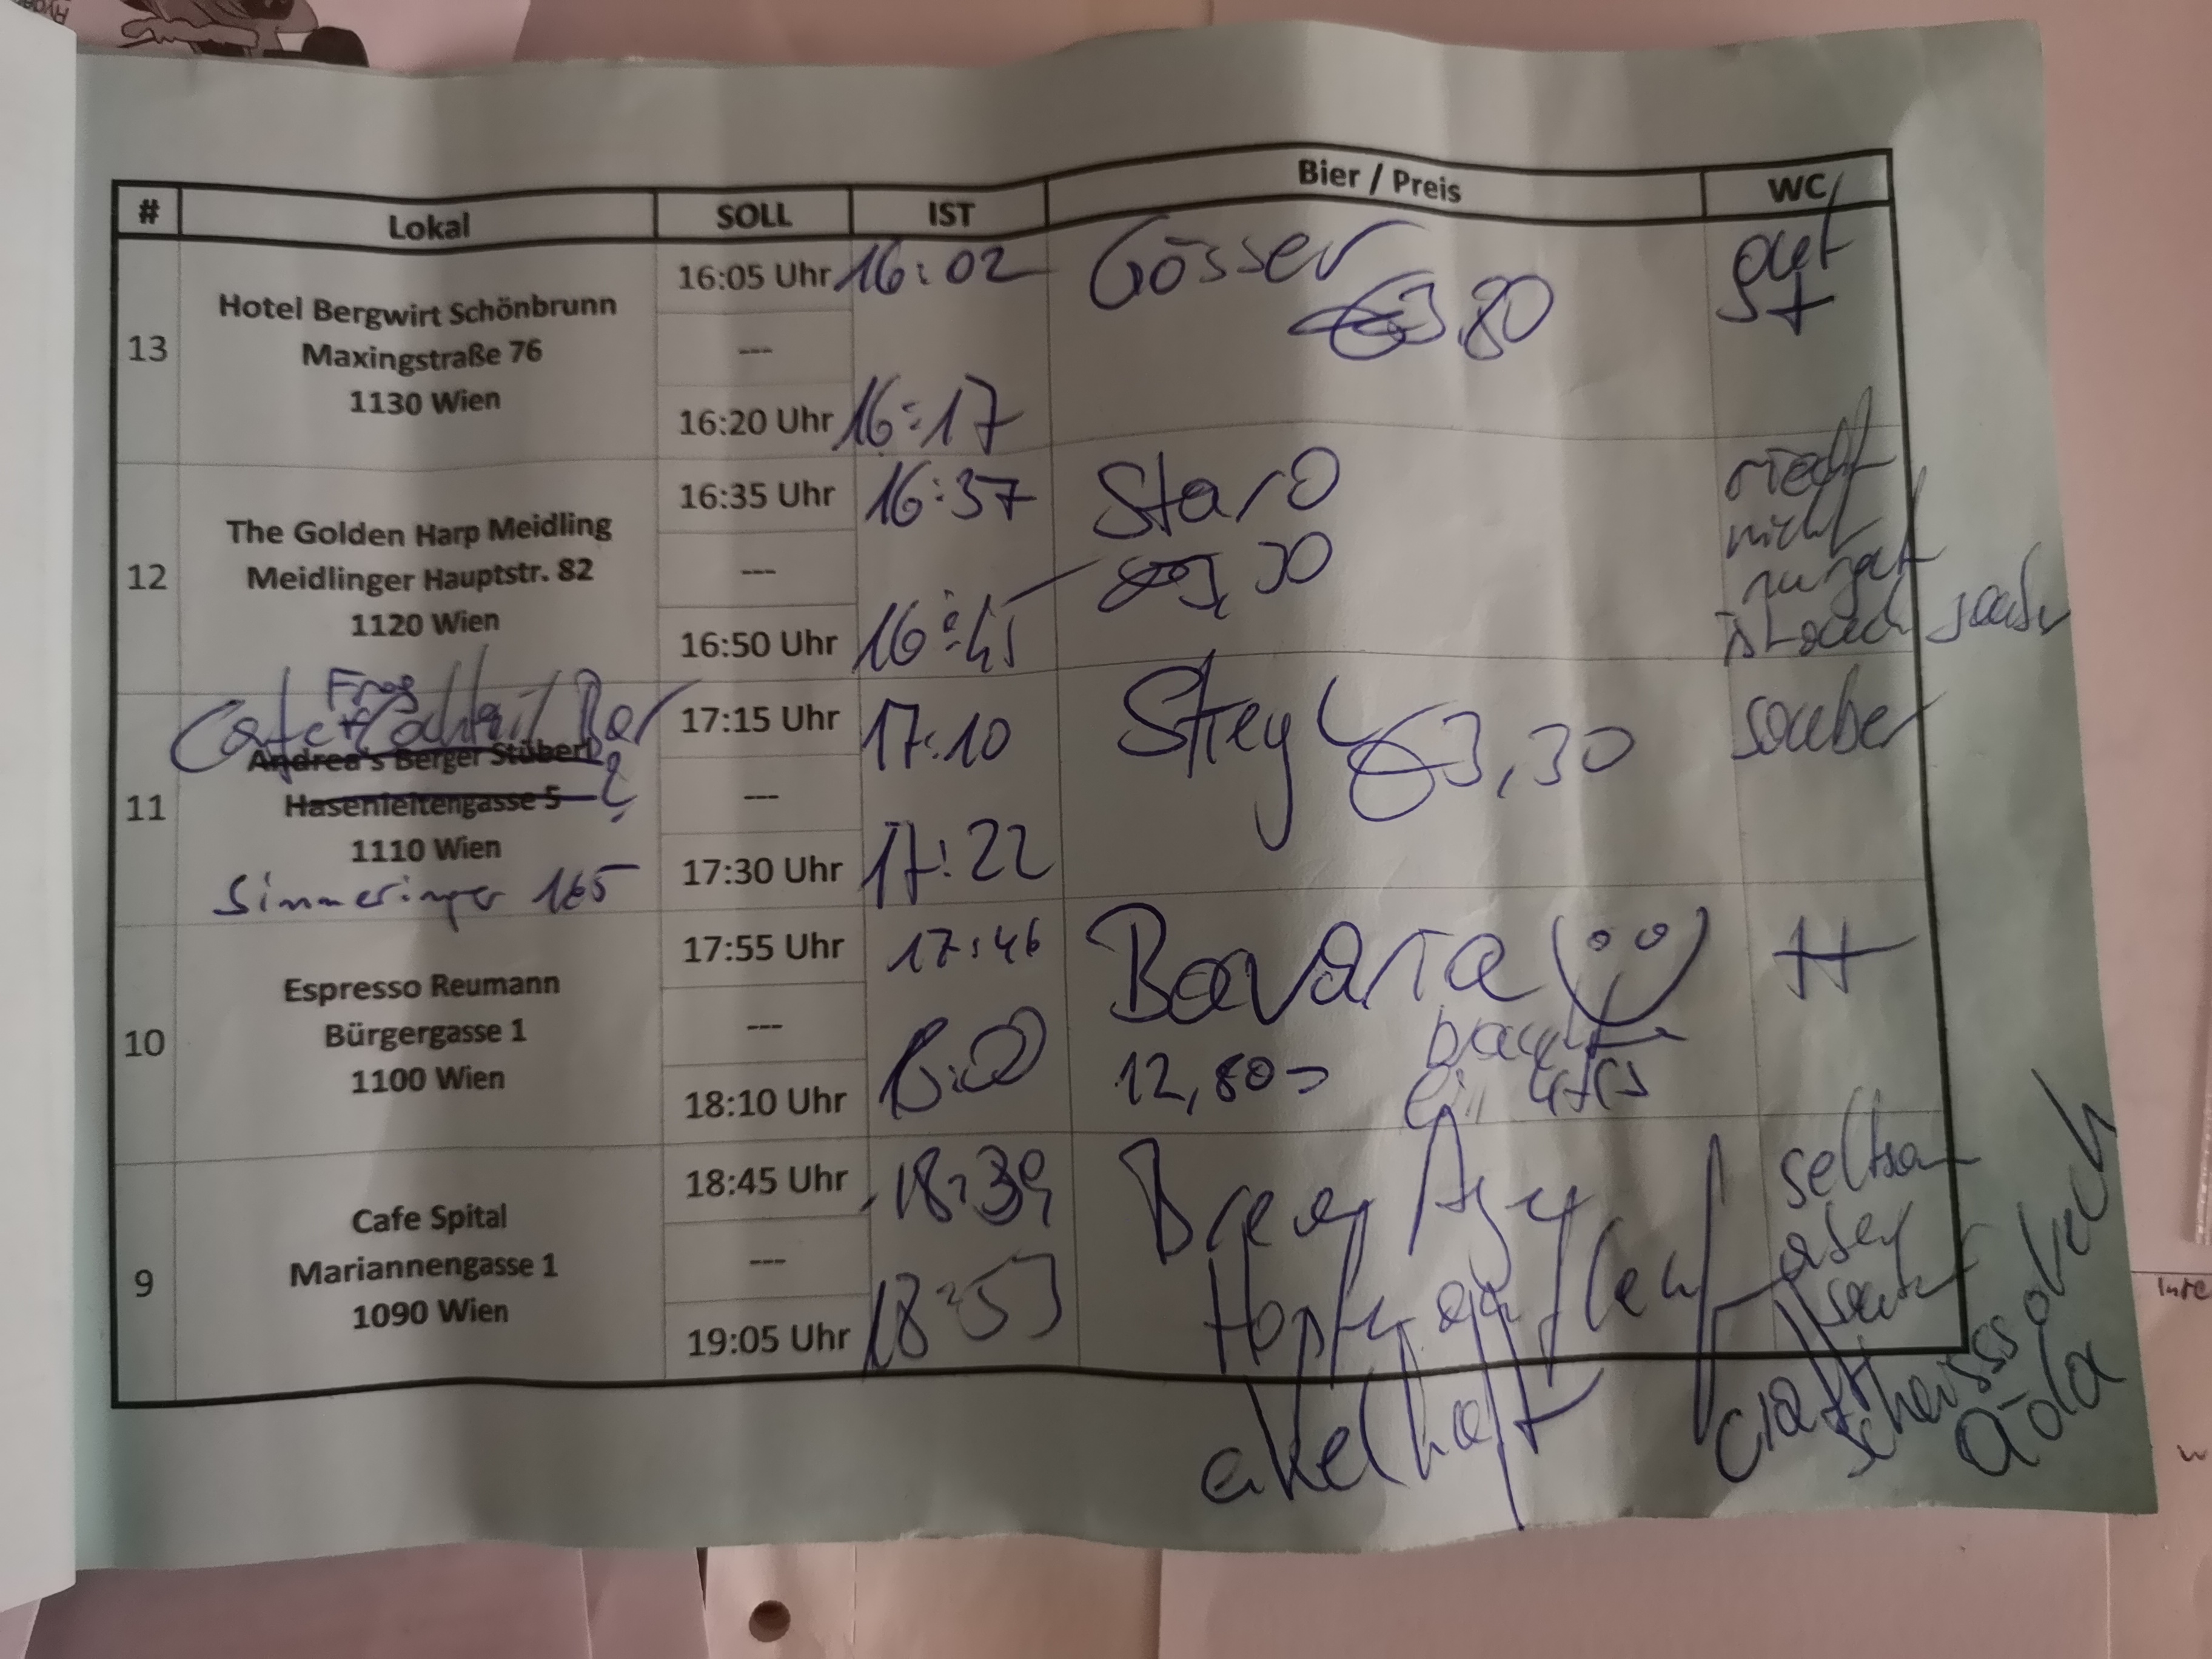 # Lokal SOLL IST Bier / Preis WC
13
Hotel Bergwirt Schönbrunn
Maxingstraße 76
1130 Wien
16:05 Uhr
---
16:20 Uhr
16:02
16:17
Gösser
€3,80
gut
+
12
The Golden Harp Meidling
Meidlinger Hauptstr. 82
1120 Wien
16:35 Uhr
---
16:50 Uhr
16:37
16:45
Staro
riecht
nicht
nur gut
ist auch sauber
11
Cafe Bar
Andrea's Berger Stüberl
Hasenleitengasse 5
1110 Wien
Simmeringer 165
17:15 Uhr
---
17:30 Uhr
17:10
17:22
Stiegl
€3,30
sauber
10
Espresso Reumann
Bürgergasse 1
1100 Wien
17:55 Uhr
---
18:10 Uhr
17:46
18:00
Bavaria
12,80
braucht
ein
++
9
Cafe Spital
Mariannengasse 1
1090 Wien
18:45 Uhr
---
19:05 Uhr
18:39
18:53
Brew Age
Hopfenauflauf
ekelhaft
seltsam
aber
sauber
craft
scheiss
oida